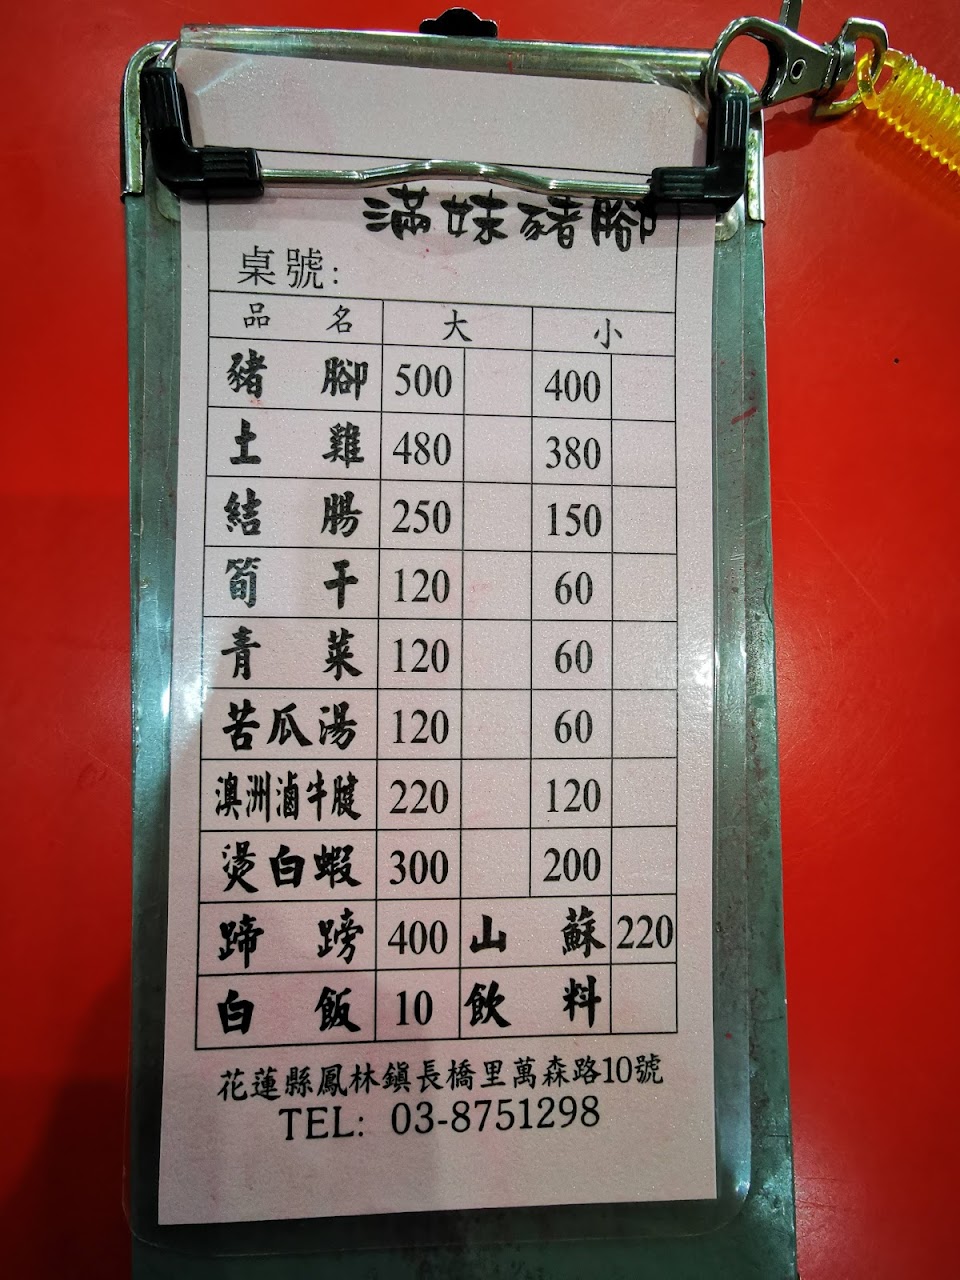 滿妹豬腳
桌號:
品名 大 小
豬腳 500 400
土雞 480 380
結腸 250 150
筍干 120 60
青菜 120 60
苦瓜湯 120 60
澳洲滷牛腱 220 120
燙白蝦 300 200
蹄膀 400 山蘇 220
白飯 10 飲料
花蓮縣鳳林鎮長橋里萬森路10號
TEL: 03-8751298